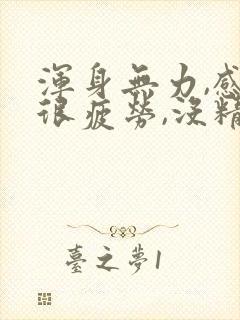 渾身無力,感
很疲勞,沒精
臺之夢1